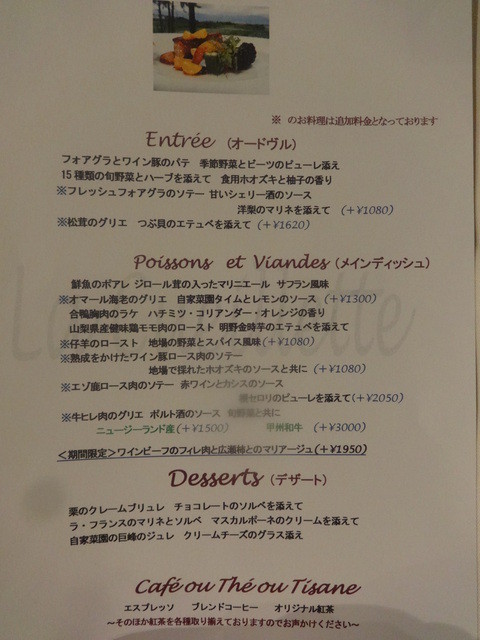 ※ のお料理は追加料金となっております
Entrée (オードヴル)
フォアグラとワイン豚のパテ 季節野菜とビーツのピューレ添え
15種類の旬野菜とハーブを添えて 食用ホオズキと柚子の香り
※フレッシュフォアグラのソテー 甘いシェリー酒のソース
洋梨のマリネを添えて (+¥1080)
※松茸のグリエ つぶ貝のエテュベを添えて (+¥1620)
Poissons et Viandes (メインディッシュ)
鮮魚のポアレ ジロール茸の入ったマリニエール サフラン風味
※オマール海老のグリエ 自家菜園タイムとレモンのソース (+¥1300)
合鴨胸肉のラケ ハチミツ・コリアンダー・オレンジの香り
山梨県産健味鶏モモ肉のロースト 明野金時芋のエテュベを添えて
※仔羊のロースト 地場の野菜とスパイス風味(+¥1080)
※熟成をかけたワイン豚ロース肉のソテー
地場で採れたホオズキのソースと共に (+¥1080)
※エゾ鹿ロース肉のソテー 赤ワインとカシスのソース
根セロリのピューレを添えて(+¥2050)
※牛ヒレ肉のグリエ ポルト酒のソース 旬野菜と共に
ニュージーランド産(+¥1500) 甲州和牛 (+¥3000)
<期間限定>ワインビーフのフィレ肉と広瀬柿とのマリアージュ(+¥1950)
Desserts (デザート)
栗のクレームブリュレ チョコレートのソルベを添えて
ラ・フランスのマリネとソルベ マスカルポーネのクリームを添えて
自家菜園の巨峰のジュレ クリームチーズのグラス添え
Café ou Thé ou Tisane
エスプレッソ ブレンドコーヒー オリジナル紅茶
～そのほか紅茶を各種取り揃えておりますのでお声かけください～